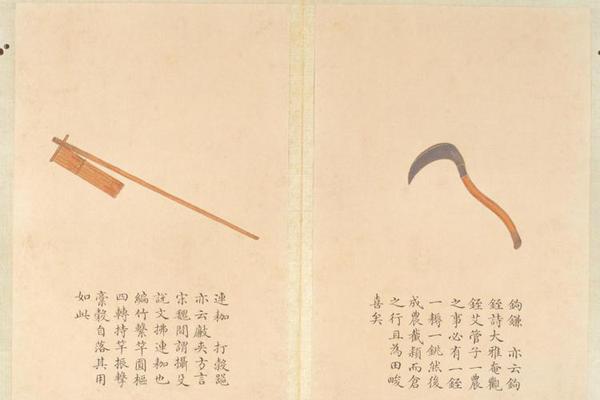 鉤鎌 亦云鉤
銍詩大雅奄觀
銍艾管子一農
之事必有一銍
一耨一銚然後
成農截穎而倉
之行且為田畯
喜矣
連枷 打穀
亦云 夾方言
宋魏間謂攝殳
說文拂連枷也
編竹繫竿圜樞
四轉持竿振擊
藁穀自落其用
如此